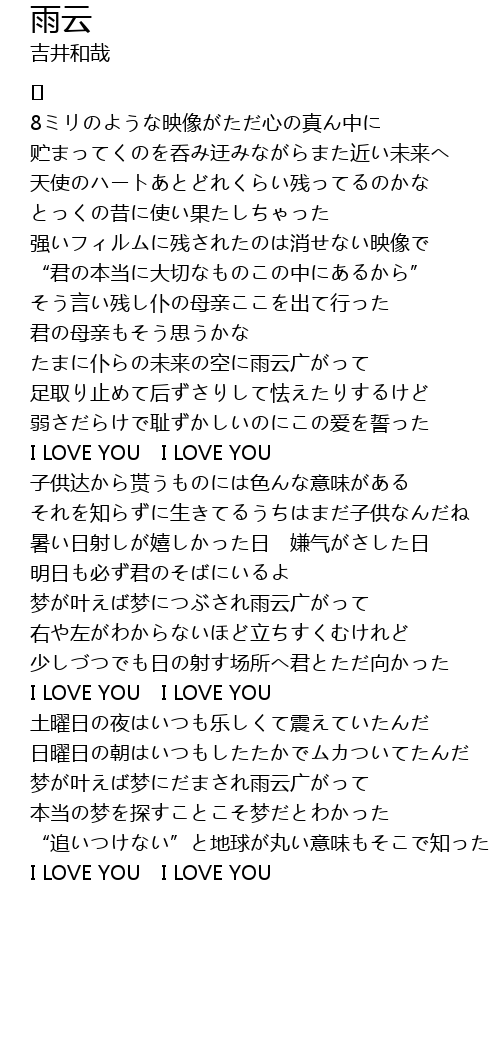 雨云
吉井和哉
[]
8ミリのような映像がただ心の真ん中に
贮まってくのを呑み迂みながらまた近い未来へ
天使のハートあとどれくらい残ってるのかな
とっくの昔に使い果たしちゃった
强いフィルムに残されたのは消せない映像で
“君の本当に大切なものこの中にあるから”
そう言い残し仆の母亲ここを出て行った
君の母亲もそう思うかな
たまに仆らの未来の空に雨云广がって
足取り止めて后ずさりして怯えたりするけど
弱さだらけで耻ずかしいのにこの爱を誓った
I LOVE YOU　I LOVE YOU
子供达から贳うものには色んな意味がある
それを知らずに生きてるうちはまだ子供なんだね
暑い日射しが嬉しかった日　嫌气がさした日
明日も必ず君のそばにいるよ
梦が叶えば梦につぶされ雨云广がって
右や左がわからないほど立ちすくむけれど
少しづつでも日の射す场所へ君とただ向かった
I LOVE YOU　I LOVE YOU
土曜日の夜はいつも乐しくて震えていたんだ
日曜日の朝はいつもしたたかでムカついてたんだ
梦が叶えば梦にだまされ雨云广がって
本当の梦を探すことこそ梦だとわかった
“追いつけない”と地球が丸い意味もそこで知った
I LOVE YOU　I LOVE YOU